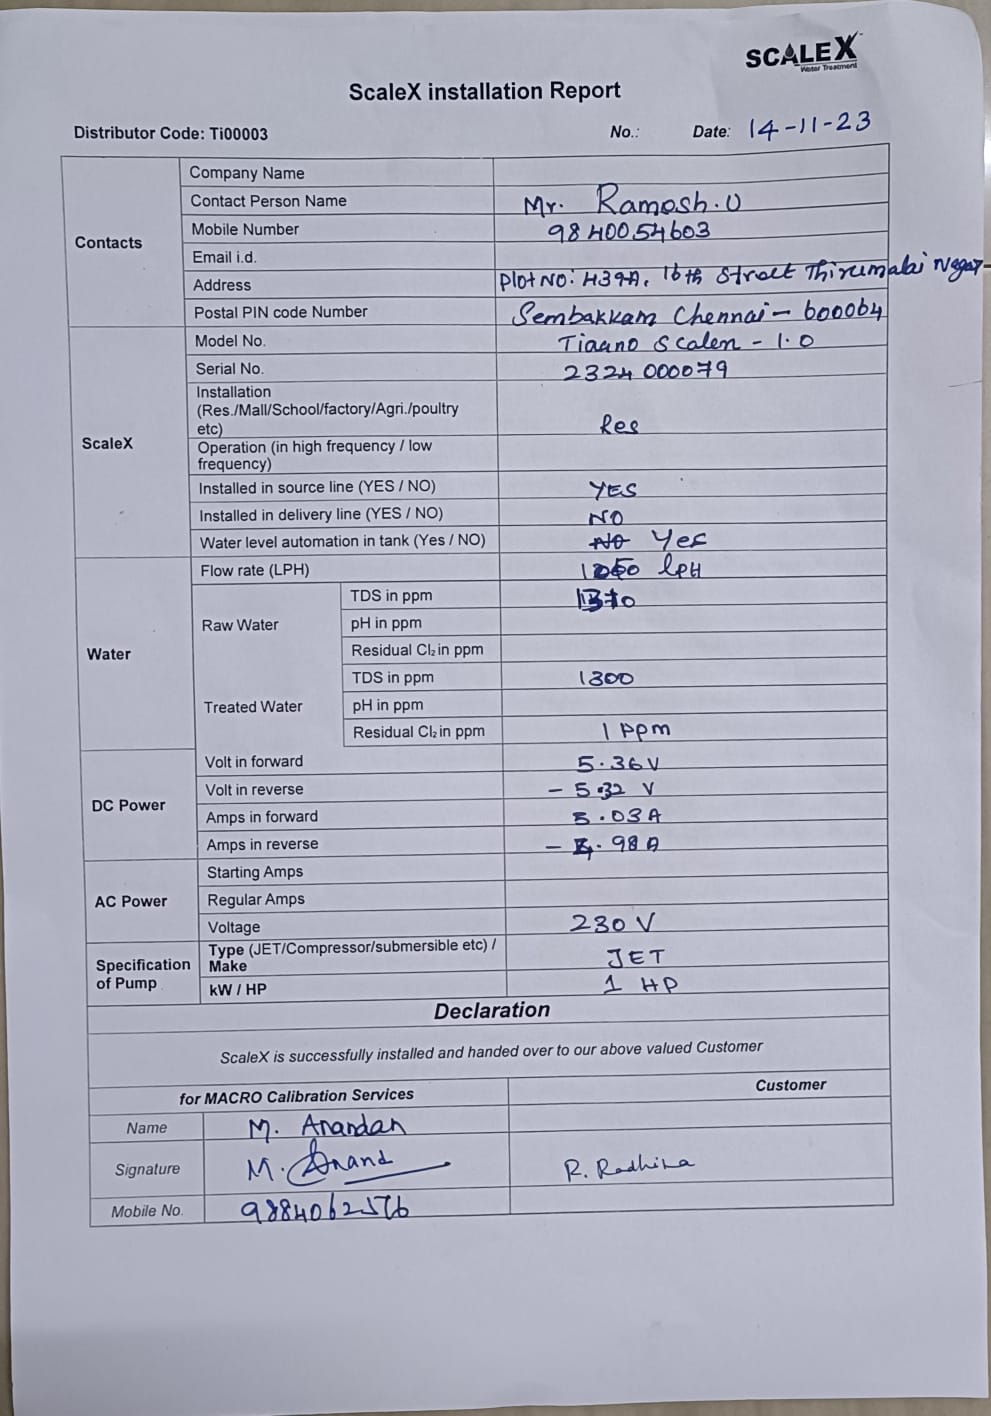 SCALEX
Water Treatment
ScaleX installation Report
Distributor Code: Ti00003 No.: Date: 14-11-23
Contacts
Company Name
Contact Person Name Mr. Ramosh.U
Mobile Number 9840054603
Email i.d.
Address Plot No: H39A, 16th Street Thirumalai Nagar-
Postal PIN code Number Sembakkam Chennai - 600064
ScaleX
Model No. Scalen - 1.0
Serial No. 2324 000079
Installation
(Res./Mall/School/factory/Agri./poultry
etc) Res
Operation (in high frequency / low
frequency)
Installed in source line (YES / NO) YES
Installed in delivery line (YES / NO) NO
Water level automation in tank (Yes / NO) NO Yes
Water
Flow rate (LPH) LPH
Raw Water
TDS in ppm
pH in ppm
Residual Cl₂ in ppm
Treated Water
TDS in ppm 1300
pH in ppm
Residual Cl₂ in ppm 1 ppm
DC Power
Volt in forward 5.36V
Volt in reverse - 5.32 V
Amps in forward 5.03A
Amps in reverse - 4.98 A
AC Power
Starting Amps
Regular Amps
Voltage 230 V
Specification
of Pump
Type (JET/Compressor/submersible etc) /
Make JET
kW / HP 1 HP
Declaration
ScaleX is successfully installed and handed over to our above valued Customer
for MACRO Calibration Services Customer
Name M. Anandan
Signature M. Anand R. Radhika
Mobile No. 9884062576